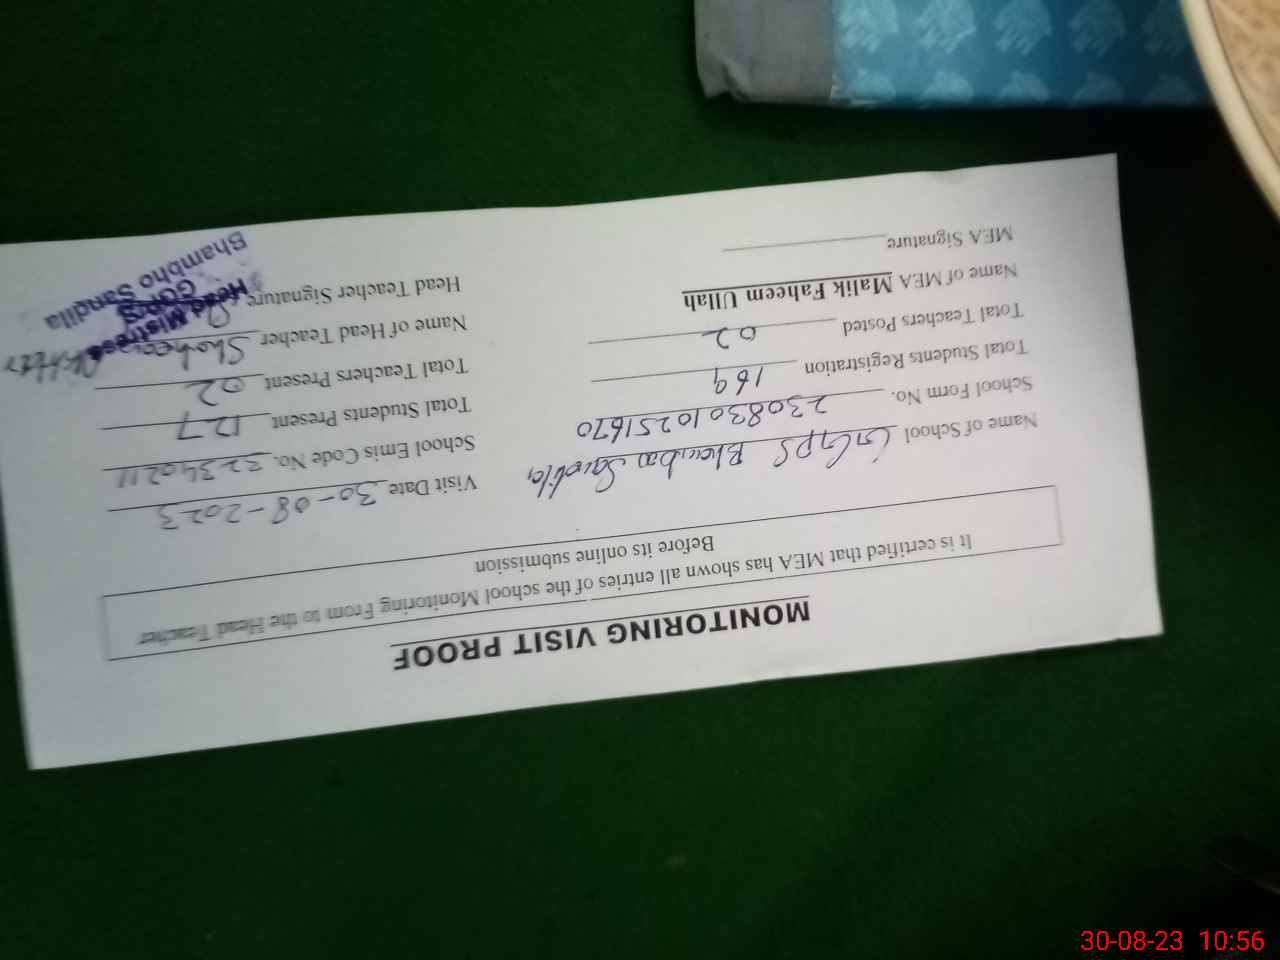 MONITORING VISIT PROOF
It is certified that MEA has shown all entries of the school Monitoring From to the Head Teacher
Before its online submission
Name of School GGPS Bhambo Sandila Visit Date 30-08-2023
School Form No. 23083010251670 School Emis Code No.
Total Students Registration 169 Total Students Present 127
Total Teachers Posted 02 Total Teachers Present 02
Name of MEA Malik Faheem Ullah Name of Head Teacher Akhter
MEA Signature Head Teacher Signature
Head Mistress
GGPS
Bhambho Sandila
30-08-23 10:56